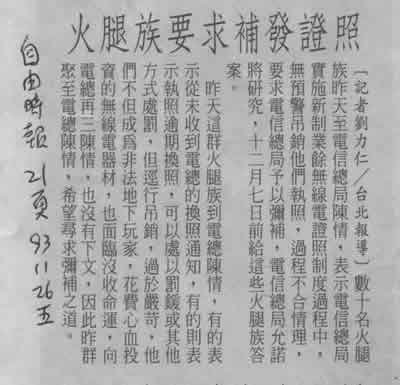 火腿族要求補發證照
〔記者劉力仁/台北報導〕數十名火腿
族昨天至電信總局陳情,表示電信總局
實施新制業餘無線電證照制度過程中,
無預警吊銷他們執照,過程不合情理,
要求電信總局予以彌補,電信總局允諾
將研究,十二月七日前給這些火腿族答
案。
昨天這群火腿族到電總陳情,有的表
示從未收到電總的換照通知,有的則表
示執照逾期換照,可以處以罰鍰或其他
方式處罰,但逕行吊銷,過於嚴苛,他
們不但成為非法地下玩家,花費心血投
資的無線電器材,也面臨沒收命運,向
電總再三陳情,也沒有下文,因此昨群
聚至電總陳情,希望尋求彌補之道。
自由時報 21頁 93.11.26五